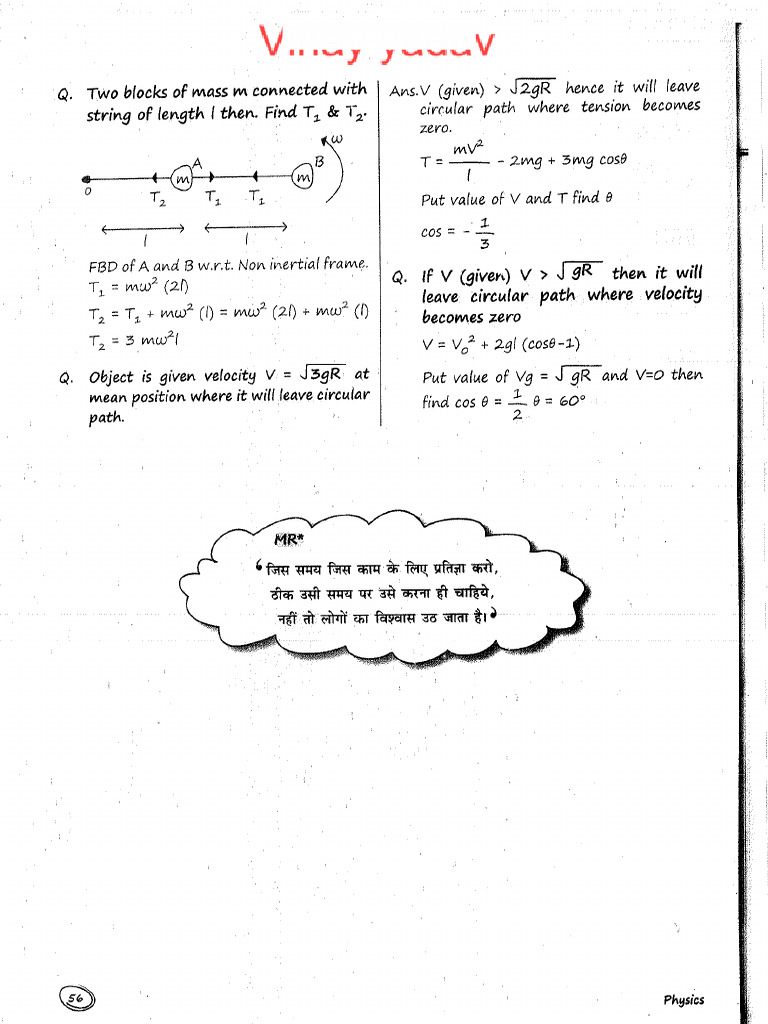 Vinay yadav
Q. Two blocks of mass m connected with
string of length l then. Find T₁ & T₂.
A
B
ω
m
m
O
T₂
T₁
T₁
l
l
FBD of A and B w.r.t. Non inertial frame.
T₁ = mω² (2l)
T₂ = T₁ + mω² (l) = mω² (2l) + mω² (l)
T₂ = 3 mω²l
Q. Object is given velocity V = √3gR at
mean position where it will leave circular
path.
Ans. V (given) > √2gR hence it will leave
circular path where tension becomes
zero.
T = mV²/l - 2mg + 3mg cosθ
Put value of V and T find θ
cos = - 1/3
Q. If V (given) V > √gR then it will
leave circular path where velocity
becomes zero
V = V₀² + 2gl (cosθ-1)
Put value of Vg = √gR and V=0 then
find cos θ = 1/2 θ = 60°
MR*
‘जिस समय जिस काम के लिए प्रतिज्ञा करो,
ठीक उसी समय पर उसे करना ही चाहिये,
नहीं तो लोगों का विश्वास उठ जाता है।’
56
Physics